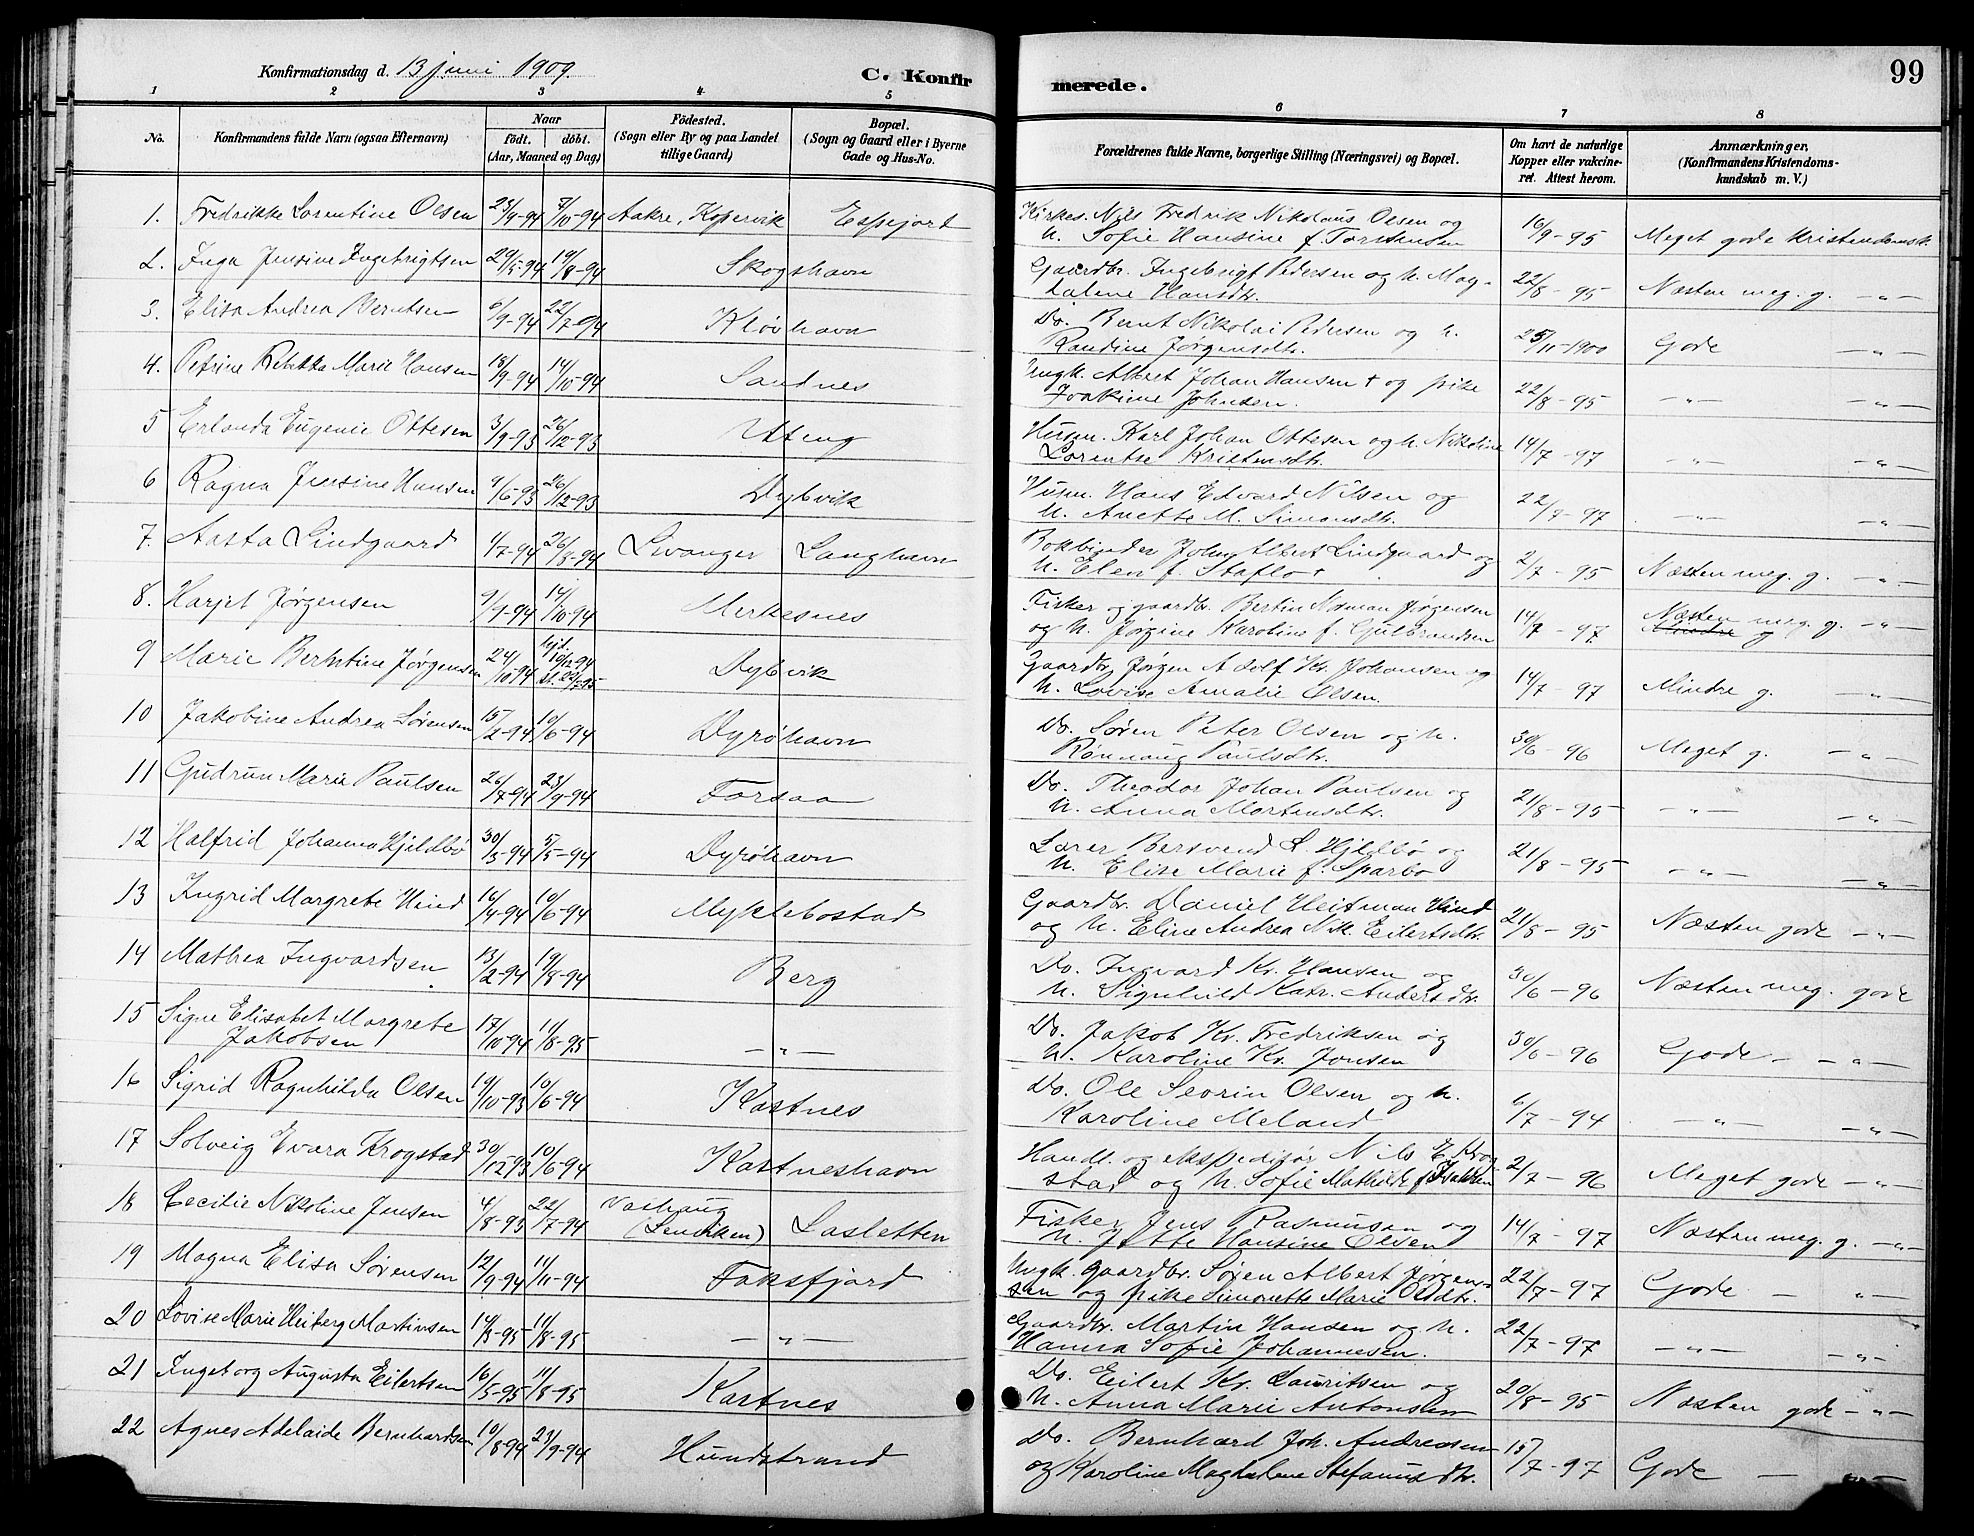 Konfirmationsdag d. 13 juni 1909. C. Konfirmerede. 99
1 2 3 4 5 6 7 8
No. Konfirmandens fulde Navn (ogsaa Efternavn) Naar födt. döbt. (Aar, Maaned og Dag) Födested. (Sogn eller By og paa Landet tillige Gaard) Bopæl. (Sogn og Gaard eller i Byerne Gade og Hus-No. Forældrenes fulde Navne, borgerlige Stilling (Næringsvei) og Bopæl. Om havt de naturlige Kopper eller vakcineret. Attest herom. Anmærkninger, (Konfirmandens Kristendomskundskab m. V.)
1. Fredrikke Lorentine Olsen 23/9-94 7/10-94 Aakre, Kopervik Espejord Kirkes. Nils Fredrik Nikolaus Olsen og
h. Sofie Hansine f. Torstensen 16/9-95 Meget gode kristendomsk.
2. Inga Jensine Ingebrigtsen 29/5-94 19/8-94 Skogshavn Gaardbr. Ingebrigt Pedersen og h. Mag-
dalene Hansdtr. 22/8-95 Næsten meg. g. -"-
3. Elisa Andrea Berntsen 6/9-94 22/7-94 Kløvhavn Do. Bernt Nikolai Pedersen og h.
Randine Jørgensdtr. 25/11-1900 Gode -"-
4. Petrine Rebekka Marie Hansen 18/9-94 14/10-94 Sandnes Ungk. Albert Johan Hansen + og pike
Joakime Johnsen. 22/8-95 -"- -"-
5 Erlanda Eugenie Ottesen 3/9-93 26/12-93 Utteng Husm. Karl Johan Ottesen og h. Nikoline
Lorentse Kristensdtr. 14/7-97 -"- -"-
6 Ragna Jensine Hansen 4/6-93 26/12-93 Dybvik Husm. Hans Edvard Nilsen og
h. Anette M. Simonsdtr. 22/7-97 -"- -"-
7. Aasta Lindgaard 4/7-94 26/8-94 Levanger Langhavn Bokbinder John Albert Lindgaard og
h. Elen f. Staflo + 2/7-95 Næsten meg. g. -"-
8. Harjet Jørgensen 9/9-94 14/10-94 Merkesnes Fisker og gaardbr. Bertin Norman Jørgensen
og h. Jørgine Karoline f. Gulbrandsen 14/7-97 Næsten meg. g. -"-
Mindre g
9 Marie Berntine Jørgensen 24/10-94 hjd. 10/12-94 st. 22/7-95 Dybvik Gaardbr. Jørgen Adolf Kr. Johansen og
h. Lovise Amalie Olsen. 14/7-97 Mindre g. -"-
10 Jakobine Andrea Sørensen 15/2-94 10/6-94 Dyrøhavn Do. Søren Peter Olsen og h.
Rønnaug Paulsdtr. 30/6-96 Meget g. -"-
11 Gudrun Marie Paulsen 26/7-94 23/9-94 Forsaa Do. Theodor Johan Paulsen og
h. Anna Mortensdtr. 21/8-95 -"- -"-
12 Halfrid Johanna Hjeldbø 30/3-94 5/5-94 Dyrøhavn Lærer Bersvend L. Hjeldbø og
h. Elise Marie f. Sparbo 21/8-95 -"- -"-
13 Ingrid Margrete Hind 16/4-94 10/6-94 Myklebostad Gaardbr. Daniel Heitman Hind
og h. Eline Andrea Nik. Eilertsdtr. 21/8-95 Næsten gode -"-
14 Mathea Ingvardsen 13/2-94 19/8-94 Berg Do. Ingvard Kr. Hansen og
h. Signhild Katr. Andersdtr. 30/6-96 Næsten meg. gode
15 Signe Elisabet Margrete
Jakobsen 17/10-94 11/8-95 -"- Do. Jakob Kr. Fredriksen og
h. Karoline Kr. Jonsen 30/6-96 Gode -"-
16 Sigrid Ragnhilda Olsen 19/10-93 10/6-94 Kastnes Do. Ole Severin Olsen og h.
Karoline Meland 6/7-94 -"- -"-
17 Solveig Evara Krogstad 30/12-93 10/6-94 Kastneshavn Handl. og ekspeditør Nils E. Krog-
stad og h. Sofie Mathilde f. Isaksen 2/7-96 Meget gode -"-
18 Cecilie Nikoline Jensen 4/8-93 22/7-94 (Lenviken) Lasletten Fisker Jens Rasmusen og
h. Jette Hansine Olsen 14/7-97 Næsten meg. g. -"-
19 Magna Elisa Sørensen 12/9-94 11/11-94 Faksfjord Ungk. gaardbr. Søren Albert Jørgen-
sen og pike Simonette Marie Olsdtr. 22/7-97 Gode -"-
20 Lovise Marie Heiberg Martinsen 14/3-95 11/8-95 -"- Gaardbr. Martin Hansen og h.
Hanna Sofie Johannesen. 22/7-97 -"- -"-
21 Ingeborg Augusta Eilertsen 16/5-95 11/8-95 Kastnes Do. Eilert Kr. Lauritsen og
h. Anna Marie Antonsen 20/8-95 Næsten gode -"-
22 Agnes Adelaide Bernhardsen 19/8-94 23/9-94 Hundstrand Do. Bernhard Joh. Andreasen
og Karoline Magdalene Stefanusdtr. 15/7-97 Gode -"-